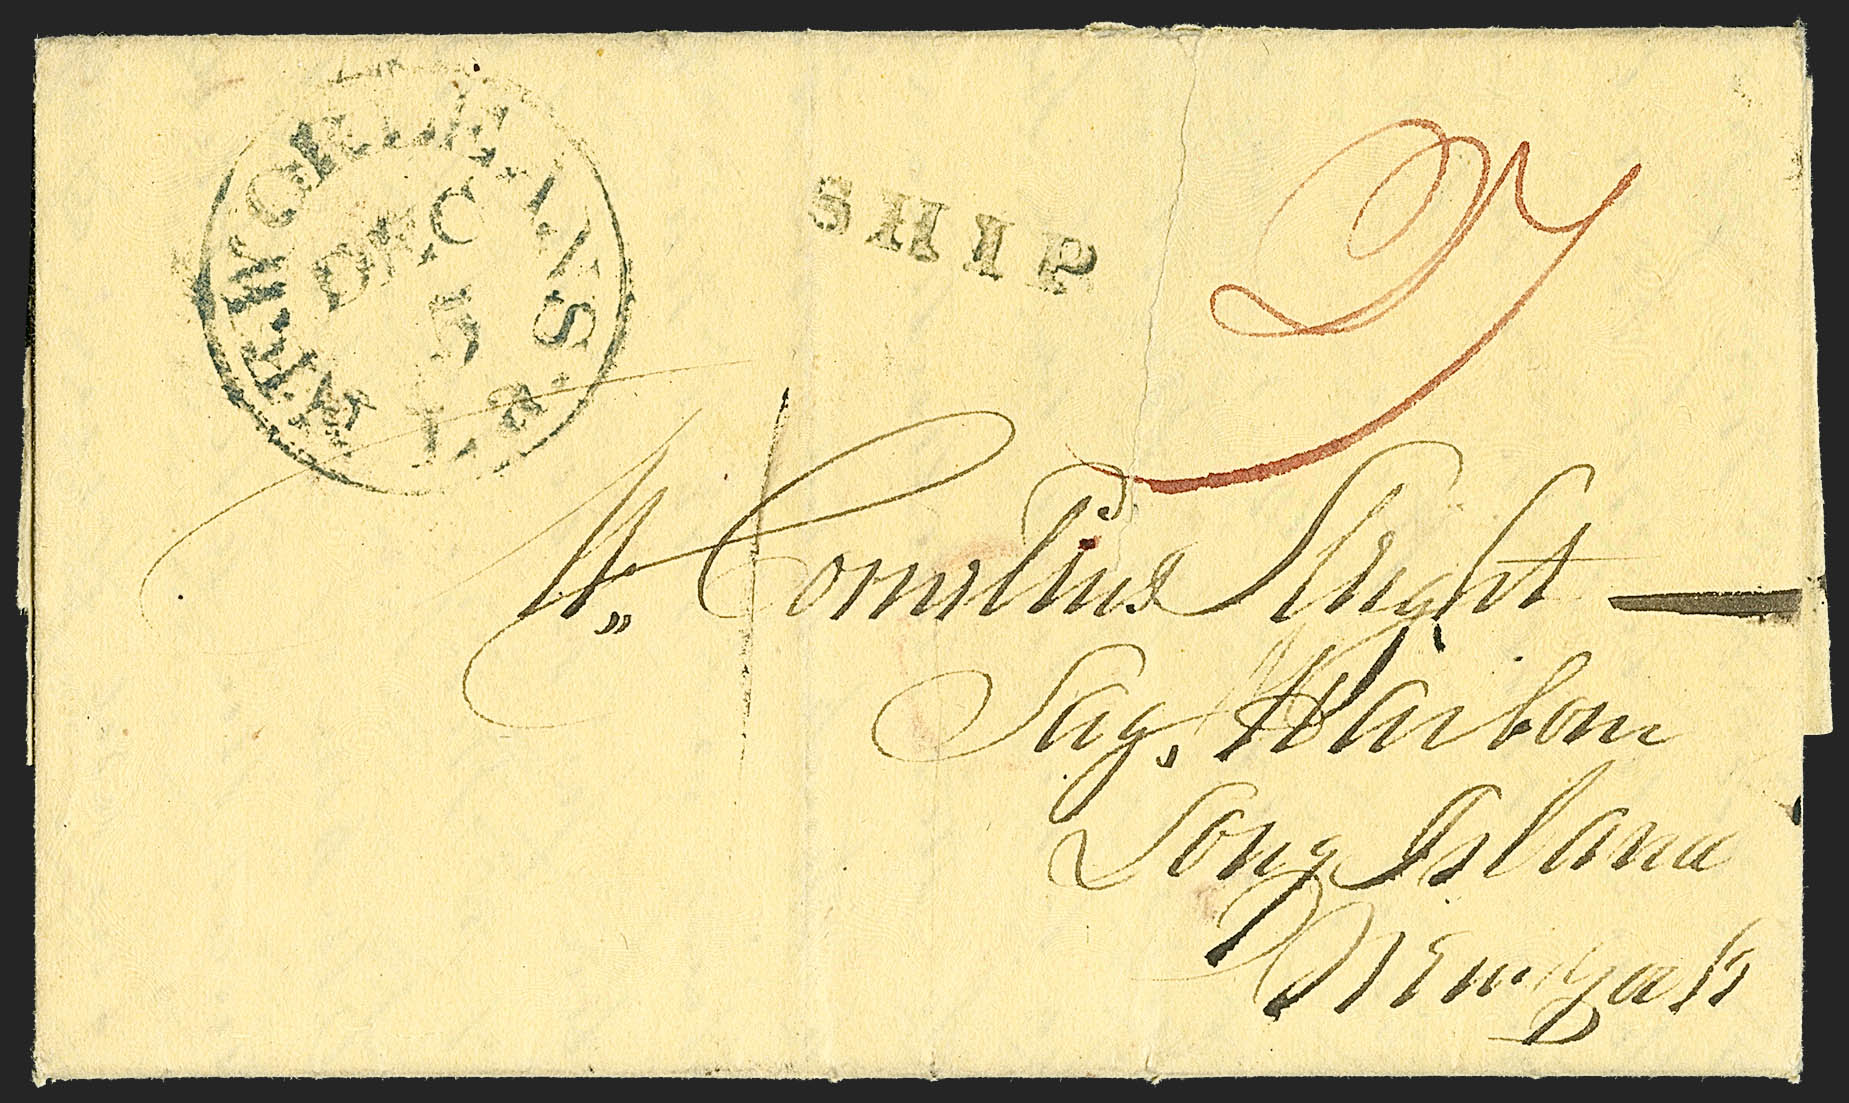 NEW ORLEANS
DEC
5
La.
SHIP
27
Mr,, Cornelius Slight
Sag, Harbour
Long Island
Newyork